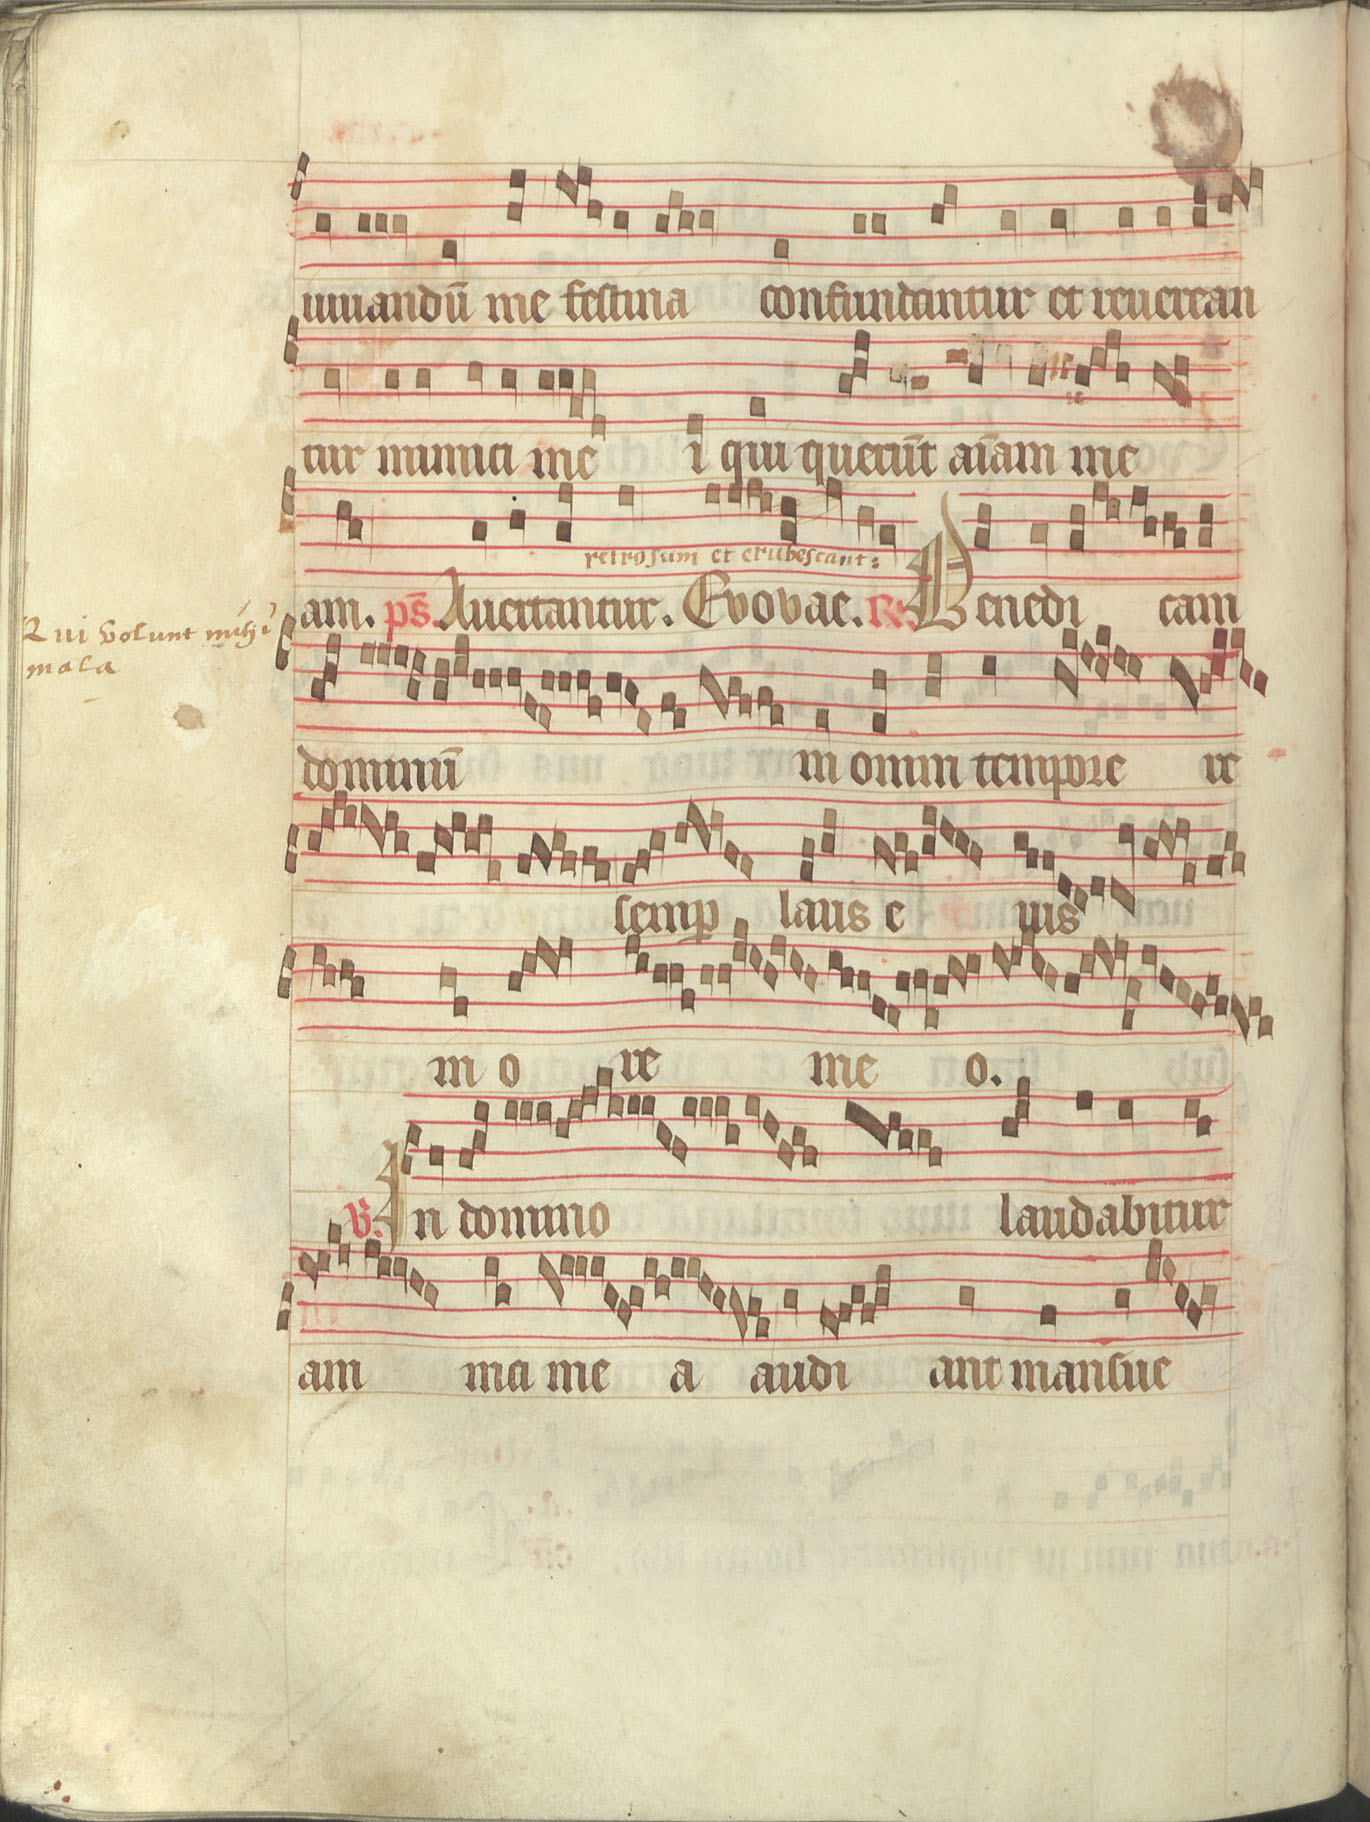 iuuandū me festina confundantur et reuerean
tur inimici me i qui querūt aīam me
retrosum et erubescant:
am. ps. Auertantur. Evovae. R. Benedi cam
Qui volunt mihi
mala
dominū in omni tempore ie
semp laus e ius
in o re me o.
V. In domino laudabitur
am ma me a audi ant mansue